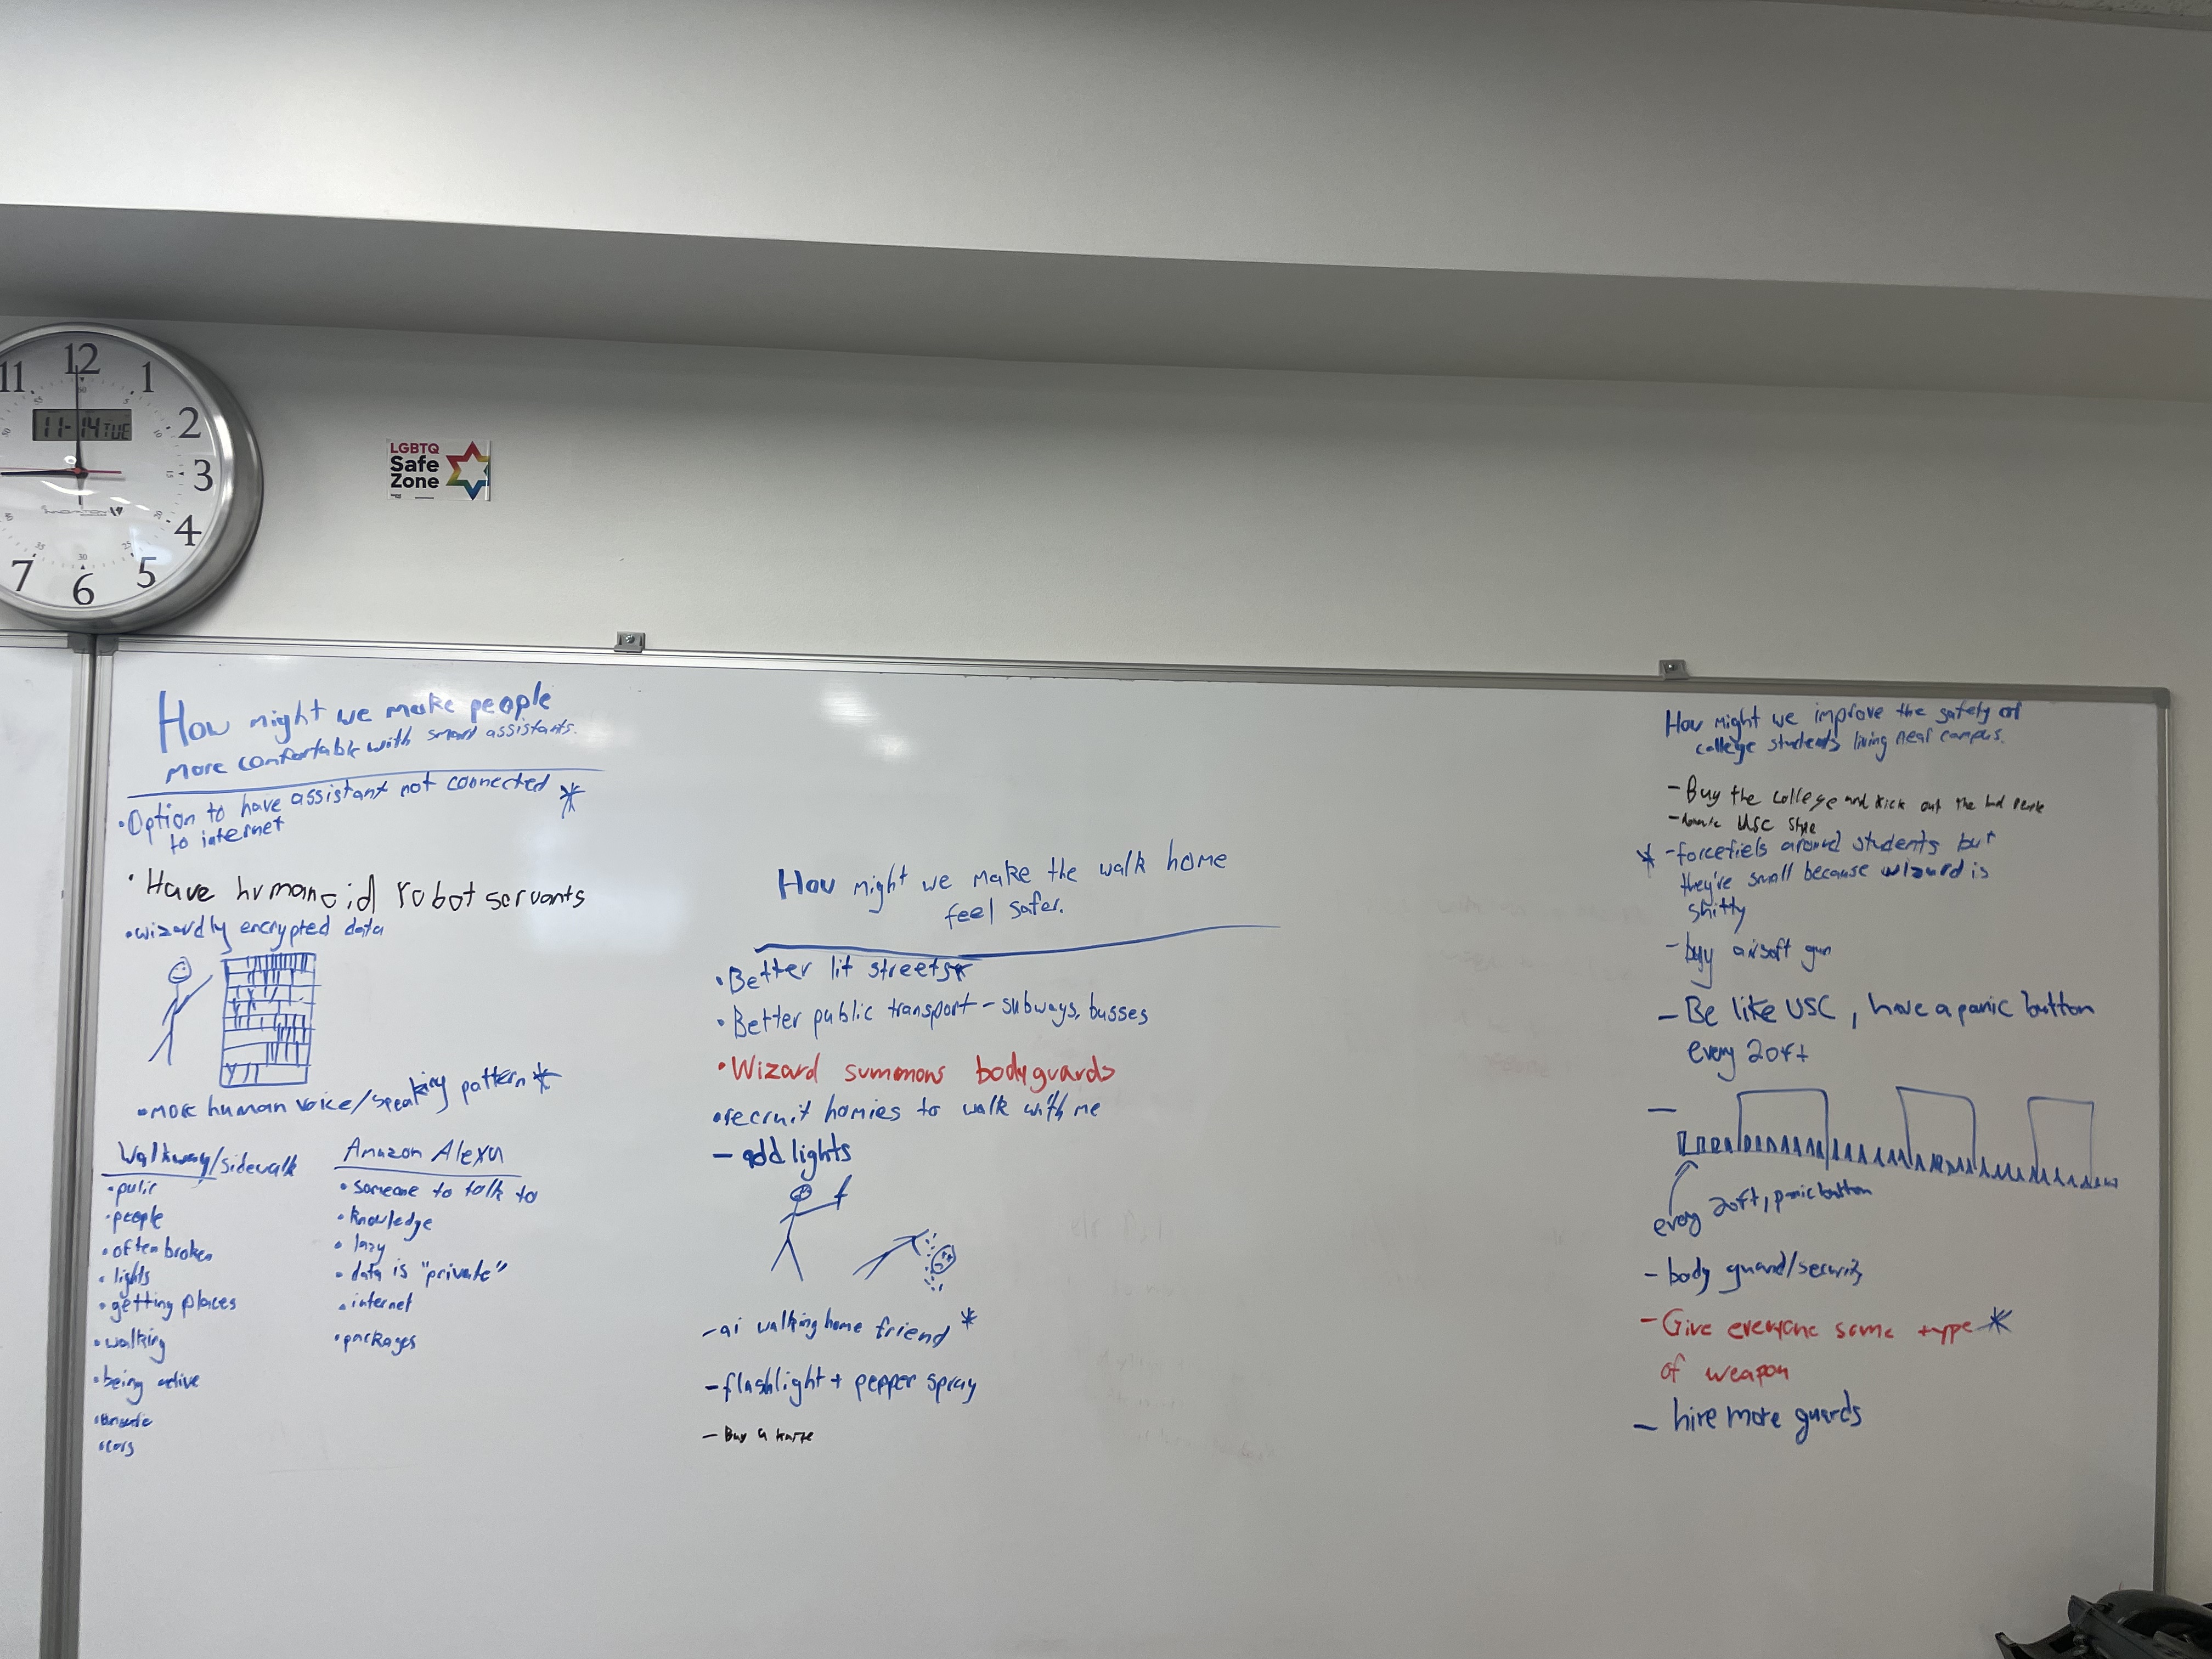 11
12
1
2
3
4
5
6
7
11-14 TUE
LGBTQ
Safe
Zone
How might we make people
more comfortable with smart assistants.
• Option to have assistant not connected *
to internet
• Have humanoid robot servants
• wizardly encrypted data
• more human voice/speaking pattern *
Walkway/sidewalk
• pulic
• people
• often broken
• lights
• getting places
• walking
• being active
• cars
Amazon Alexa
• someone to talk to
• knowledge
• lazy
• data is "private"
• internet
• packages
How might we make the walk home
feel safer.
• Better lit streets *
• Better public transport - subways, busses
• Wizard summons bodyguards
• recruit homies to walk with me
- add lights
- ai walking home friend *
- flashlight + pepper spray
- Buy a
How might we improve the safety of
college students living near campus.
- Buy the college and kick out the bad people
- USC style
* - forcefiels around students but
they're small because wizard is
shitty
- buy airsoft gun
- Be like USC, have a panic button
every 20ft
-
every 20ft, panic button
- body guard/security
- Give everyone some type *
of weapon
- hire more guards